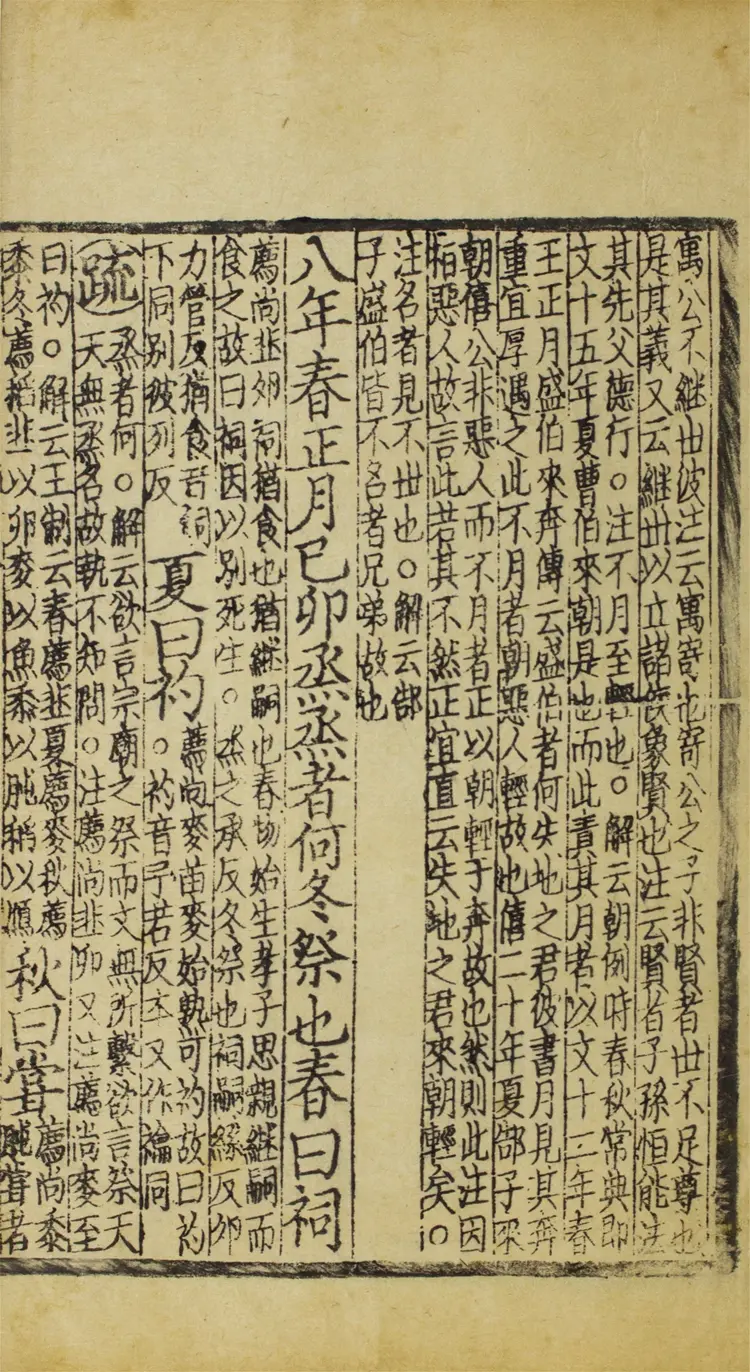 寓公不継世彼注云寓寄也寄公之子非賢者世不足尊也
是其義又云継世以立諸侯象賢也注云賢者子孫恒能法
其先父德行○注不月至輕也○解云朝例時春秋常典即
文十五年夏曹伯來朝是也而此責其月者以文十二年春
王正月盛伯來奔傳云盛伯者何失地之君彼書月見其奔
重宜厚遇之此不月者朝惡人輕故也僖二十年夏郜子來
朝僖公非惡人而不月者正以朝輕于奔故也然則此注因
柏惡人故言此若其不然正宜直云失地之君來朝輕矣○
注名者見不世也○解云郜
子盛伯皆不名者兄弟故也
八年春正月巳卯烝烝者何冬祭也春曰祠
薦尚韭夘祠猶食也猶継嗣也春物始生孝子思親継嗣而
食之故曰祠因以別死生○烝之承反冬祭也祠嗣緣反夘
力管反猶食音詞
下同别彼列反
夏曰礿
薦尚麥苗麥始熟可礿故曰礿
○礿音予若反本又作禴同
疏
烝者何○解云欲言宗廟之祭而文無所繫欲言祭天
天無烝名故執不知問○注薦尚韭卯又注薦尚麥至
曰礿○解云王制云春薦韭夏薦麥秋薦
黍冬薦稻韭以卯麥以魚黍以肫稻以鴈
秋曰甞
薦尚黍
肫甞者